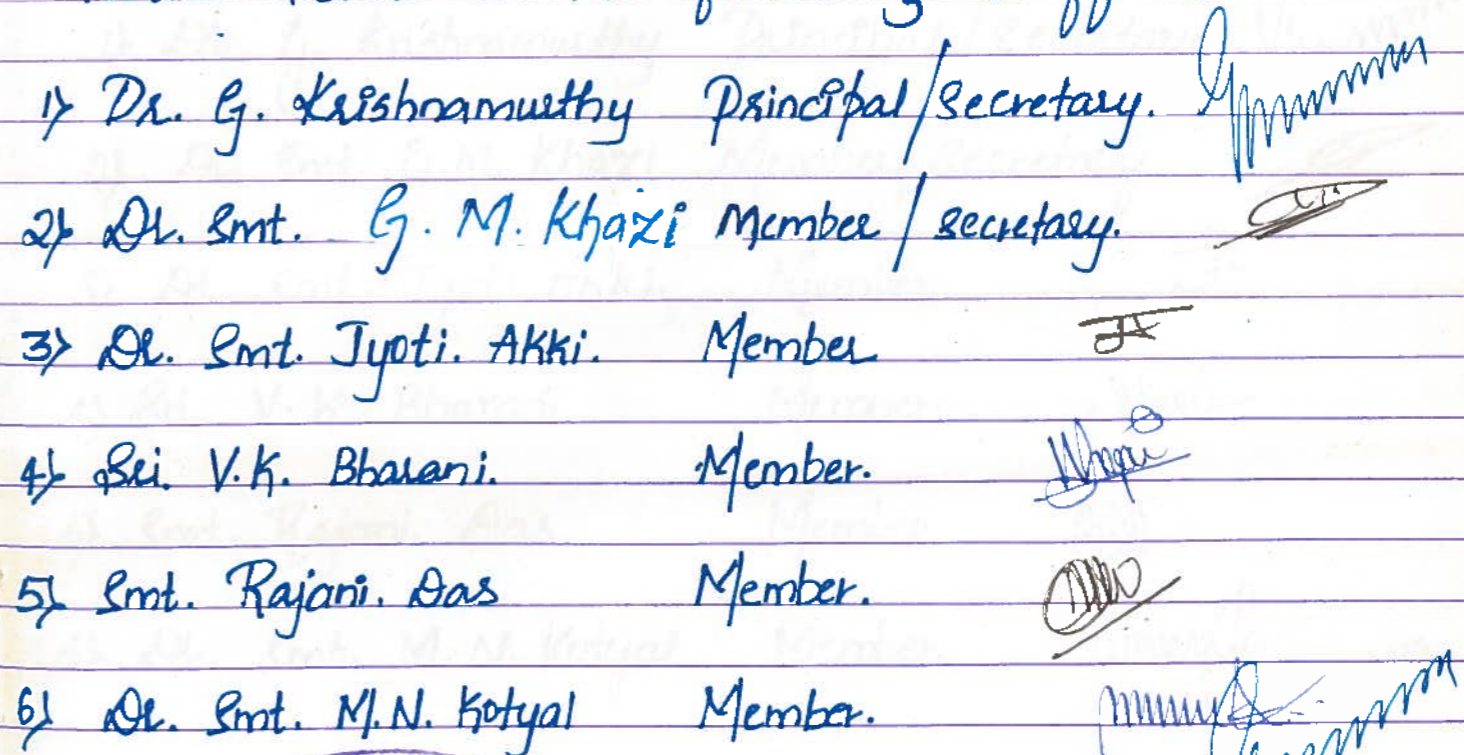 1) Dr. G. Krishnamurthy Principal/Secretary.
2) Dr. Smt. G. M. Khazi Member / secretary.
3) Dr. Smt. Jyoti. Akki. Member
4) Sri. V.K. Bharani. Member.
5) Smt. Rajani. Das Member.
6) Dr. Smt. M.N. Kotyal Member.